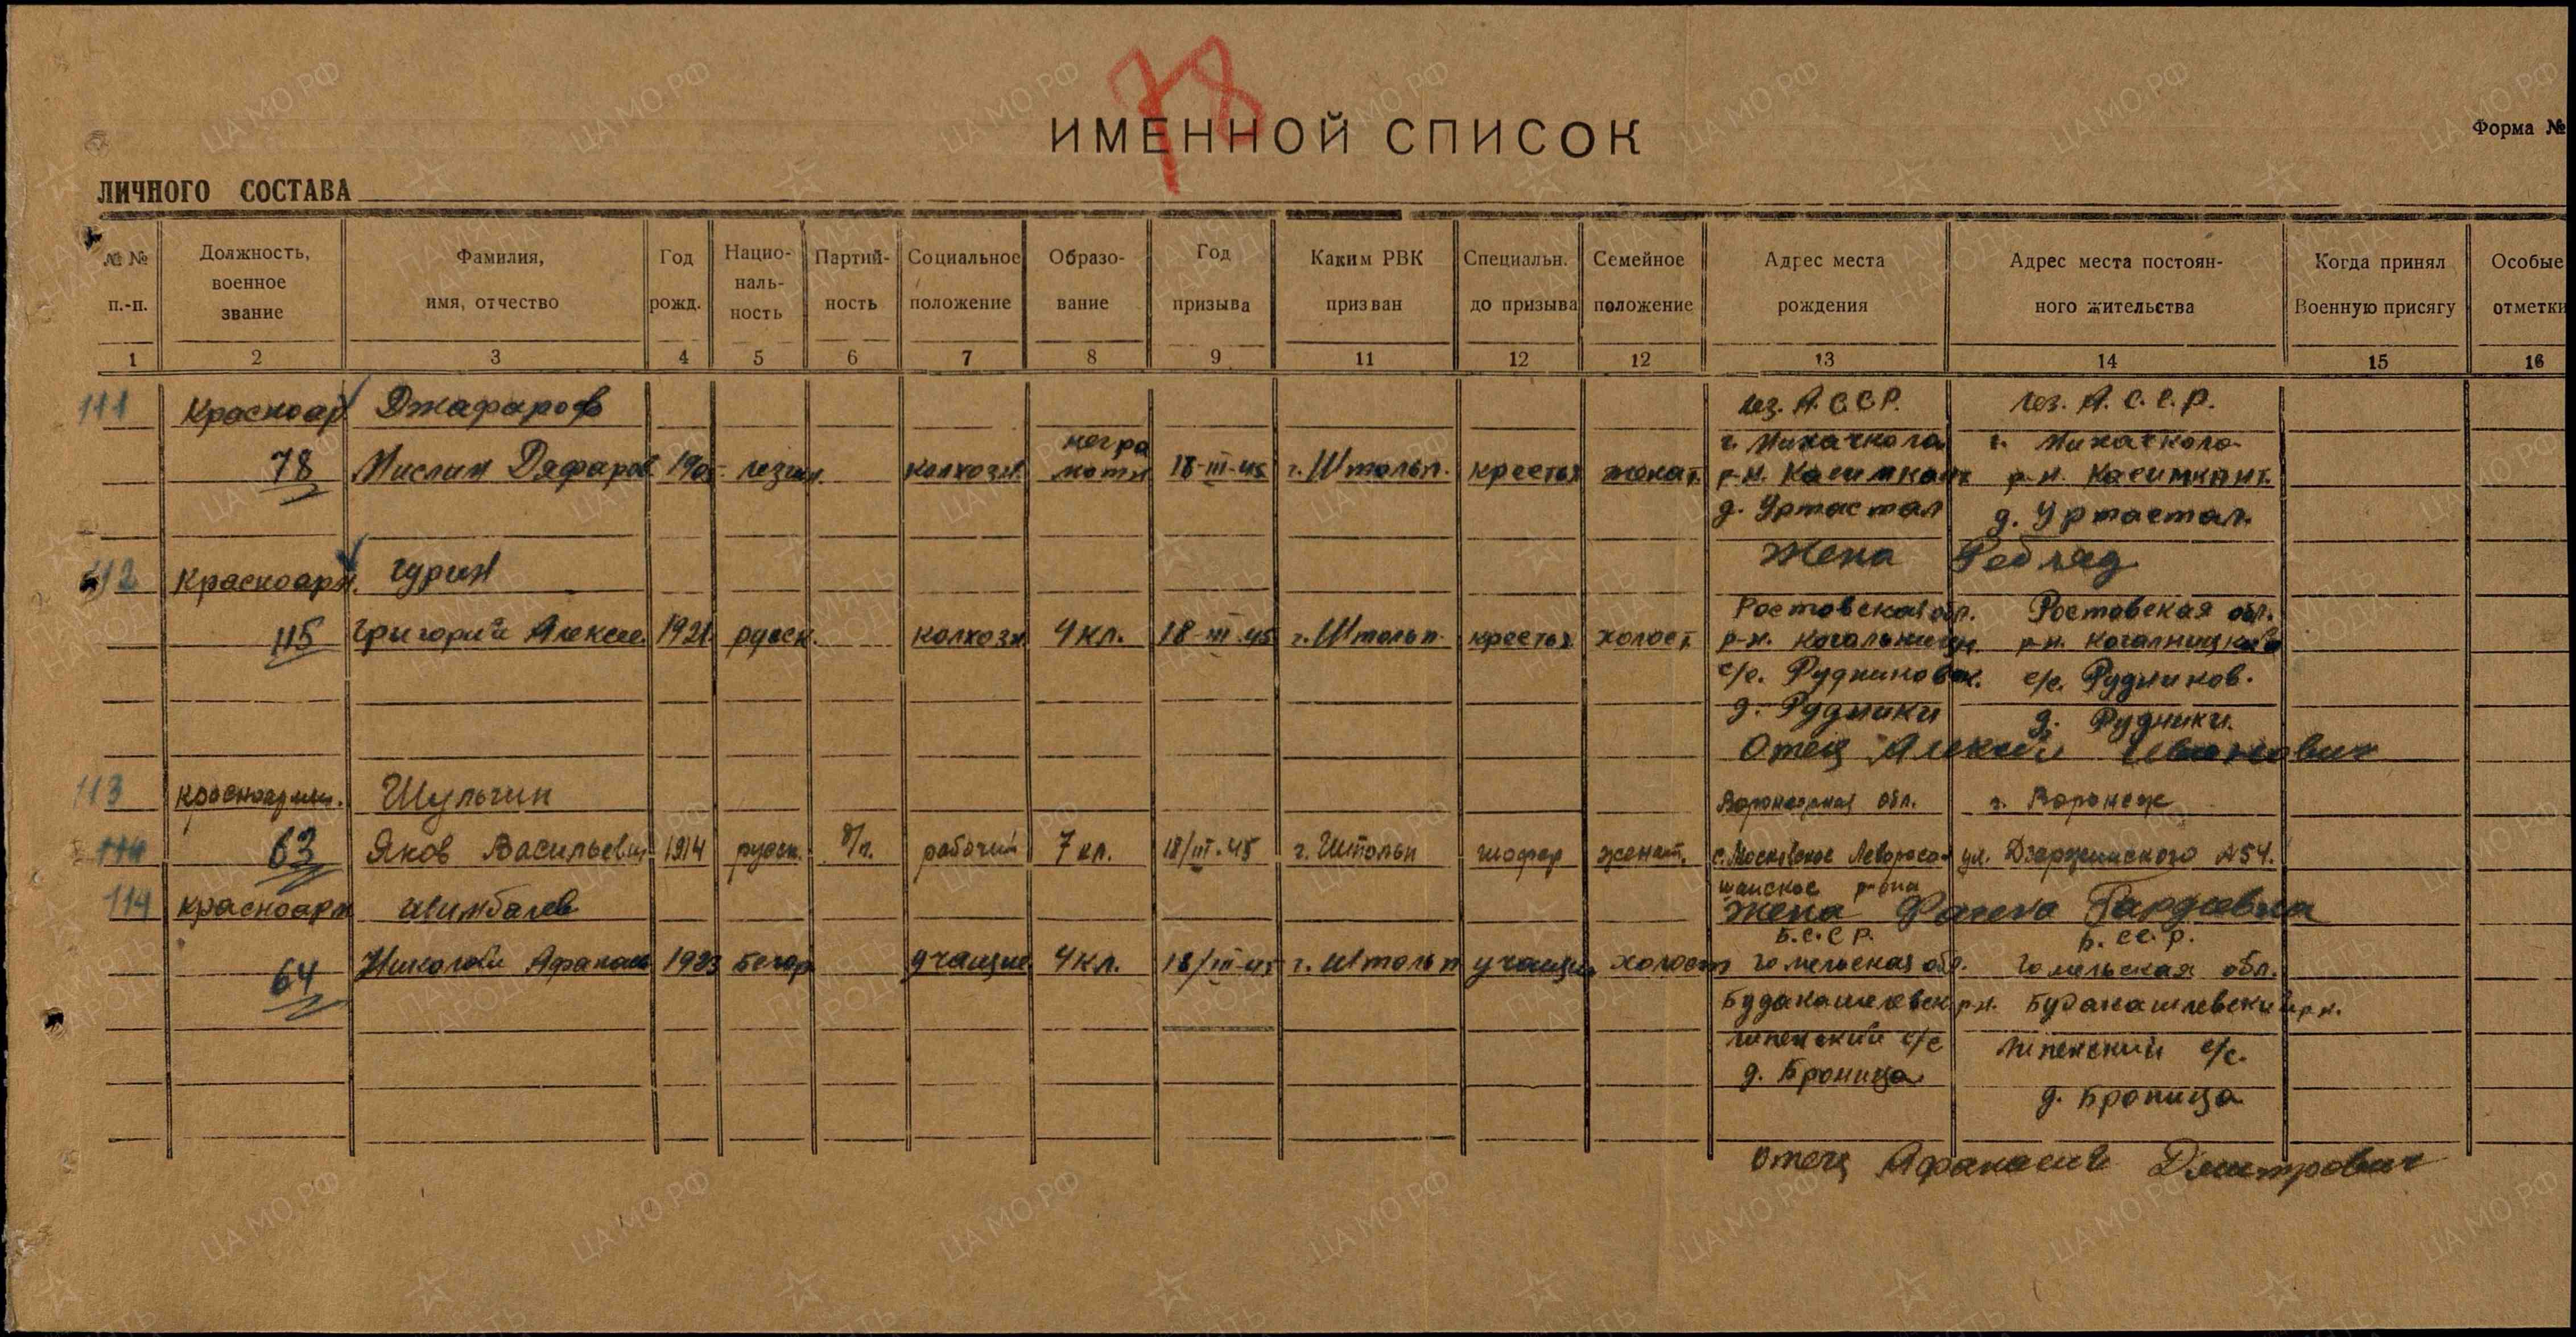 78
ИМЕННОЙ СПИСОК
Форма №
ЛИЧНОГО СОСТАВА
№ № п.-п. Должность, военное звание Фамилия, имя, отчество Год рожд. Нацио- наль- ность Партий- ность Социальное положение Образо- вание Год призыва Каким РВК призван Специальн. до призыва Семейное положение Адрес места рождения Адрес места постоян- ного жительства Когда принял Военную присягу Особые отметки
1 2 3 4 5 6 7 8 9 11 12 12 13 14 15 16
111 Красноар Джафаров лез. А.С.С.Р. лез. А.С.С.Р.
негра г. Махачкола г. Махачкола
78 Мислим Дяфаров 1905 лезгин колхозн. мотн 18-III-45 г. Штольп. крестьз женат. р-н. Касимкант р-н. Касимкант.
д. Уртастал д. Уртастал.
Жена
112 Красноарм. Гурин
Ростовская обл. Ростовская обл.
115 Григорий Алексее. 1921 русск. колхозн 4 кл. 18-III-45 г. Штольп. крестьз холост. р-н. р-н.
с/с. с/с. Рудников.
д. Рудники д. Рудники.
Отец Алексей Иванович
113 красноарм. Шульгин обл. г. Воронеж
114 63 Яков Васильевич 1914 русск. б/п. рабочий 7 кл. 18/III-45 г. Штольп шофер женат. с. Московское ул. Дзержинского №54.
района
114 красноарм Жена
Б.С.С.Р. Б.ССР.
64 Николай Афанась 1923 белор учащие 4 кл. 18/III-45 г. Штольп учащие холост Гомельская обл. Гомельская обл.
Будакошелевск. р-н. Будакашлевский р-н.
Липенский с/с Липенский с/с.
д. Броница
д. Броница
Отец Афанасий Дмитрович
ЦА МО РФ
ПАМЯТЬ НАРОДА